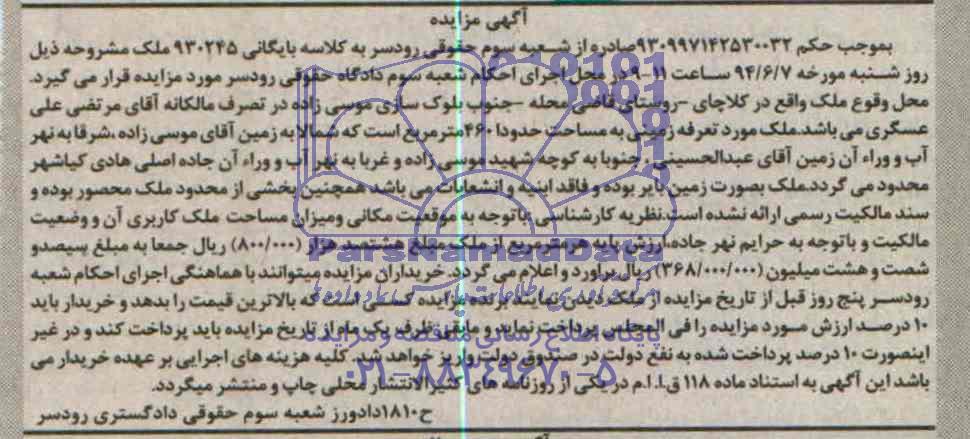 آگهی مزایده
بموجب حکم ۹۳۰۹۹۷۱۴۲۵۳۰۰۳۲صادره از شعبه سوم حقوقی رودسر به کلاسه بایگانی ۹۳۰۲۴۵ ملک مشروحه ذیل
روز شنبه مورخه ۹۴/۶/۷ ساعت ۱۱-۹ در محل اجرای احکام شعبه سوم دادگاه حقوقی رودسر مورد مزایده قرار می گیرد.
محل وقوع ملک واقع در کلاچای -روستای قاضی محله -جنوب بلوک سازی موسی زاده در تصرف مالکانه آقای مرتضی علی
عسگری می باشد.ملک مورد تعرفه زمینی به مساحت حدودا ۴۶۰مترمربع است که شمالا به زمین آقای موسی زاده ،شرقا به نهر
آب و وراء آن زمین آقای عبدالحسینی ,جنوبا به کوچه شهید موسی زاده و غربا به نهر آب و وراء آن جاده اصلی هادی کیاشهر
محدود می گردد.ملک بصورت زمین بایر بوده و فاقد ابنیه و انشعابات می باشد همچنین بخشی از محدود ملک محصور بوده و
سند مالکیت رسمی ارائه نشده است.نظریه کارشناسی :باتوجه به موقعیت مکانی ومیزان مساحت ملک کاربری آن و وضعیت
مالکیت و باتوجه به حرایم نهر جاده،ارزش پایه هر مترمربع از ملک مبلغ هشتصد هزار (۸۰۰/۰۰۰) ریال جمعا به مبلغ سیصدو
شصت و هشت میلیون (۳۶۸/۰۰۰/۰۰۰) ریال براورد و اعلام می گردد. خریداران مزایده میتوانند با هماهنگی اجرای احکام شعبه
رودسر پنج روز قبل از تاریخ مزایده از ملک دیدن نمایند برنده مزایده کسی است که بالاترین قیمت را بدهد و خریدار باید
۱۰ درصد ارزش مورد مزایده را فی المجلس پرداخت نماید و مابقی ظرف یک ماه از تاریخ مزایده باید پرداخت کند و در غیر
اینصورت ۱۰ درصد پرداخت شده به نفع دولت در صندوق دولت واریز خواهد شد. کلیه هزینه های اجرایی بر عهده خریدار می
باشد این آگهی به استناد ماده ۱۱۸ ق.ا.ا.م در یکی از روزنامه های کثیرالانتشار محلی چاپ و منتشر میگردد.
ح۱۸۱۰دادورز شعبه سوم حقوقی دادگستری رودسر
ParsNamadData
پایگاه اطلاع رسانی مناقصه و مزایده
۰۲۱-۸۸۳۴۹۶۷۰-۵